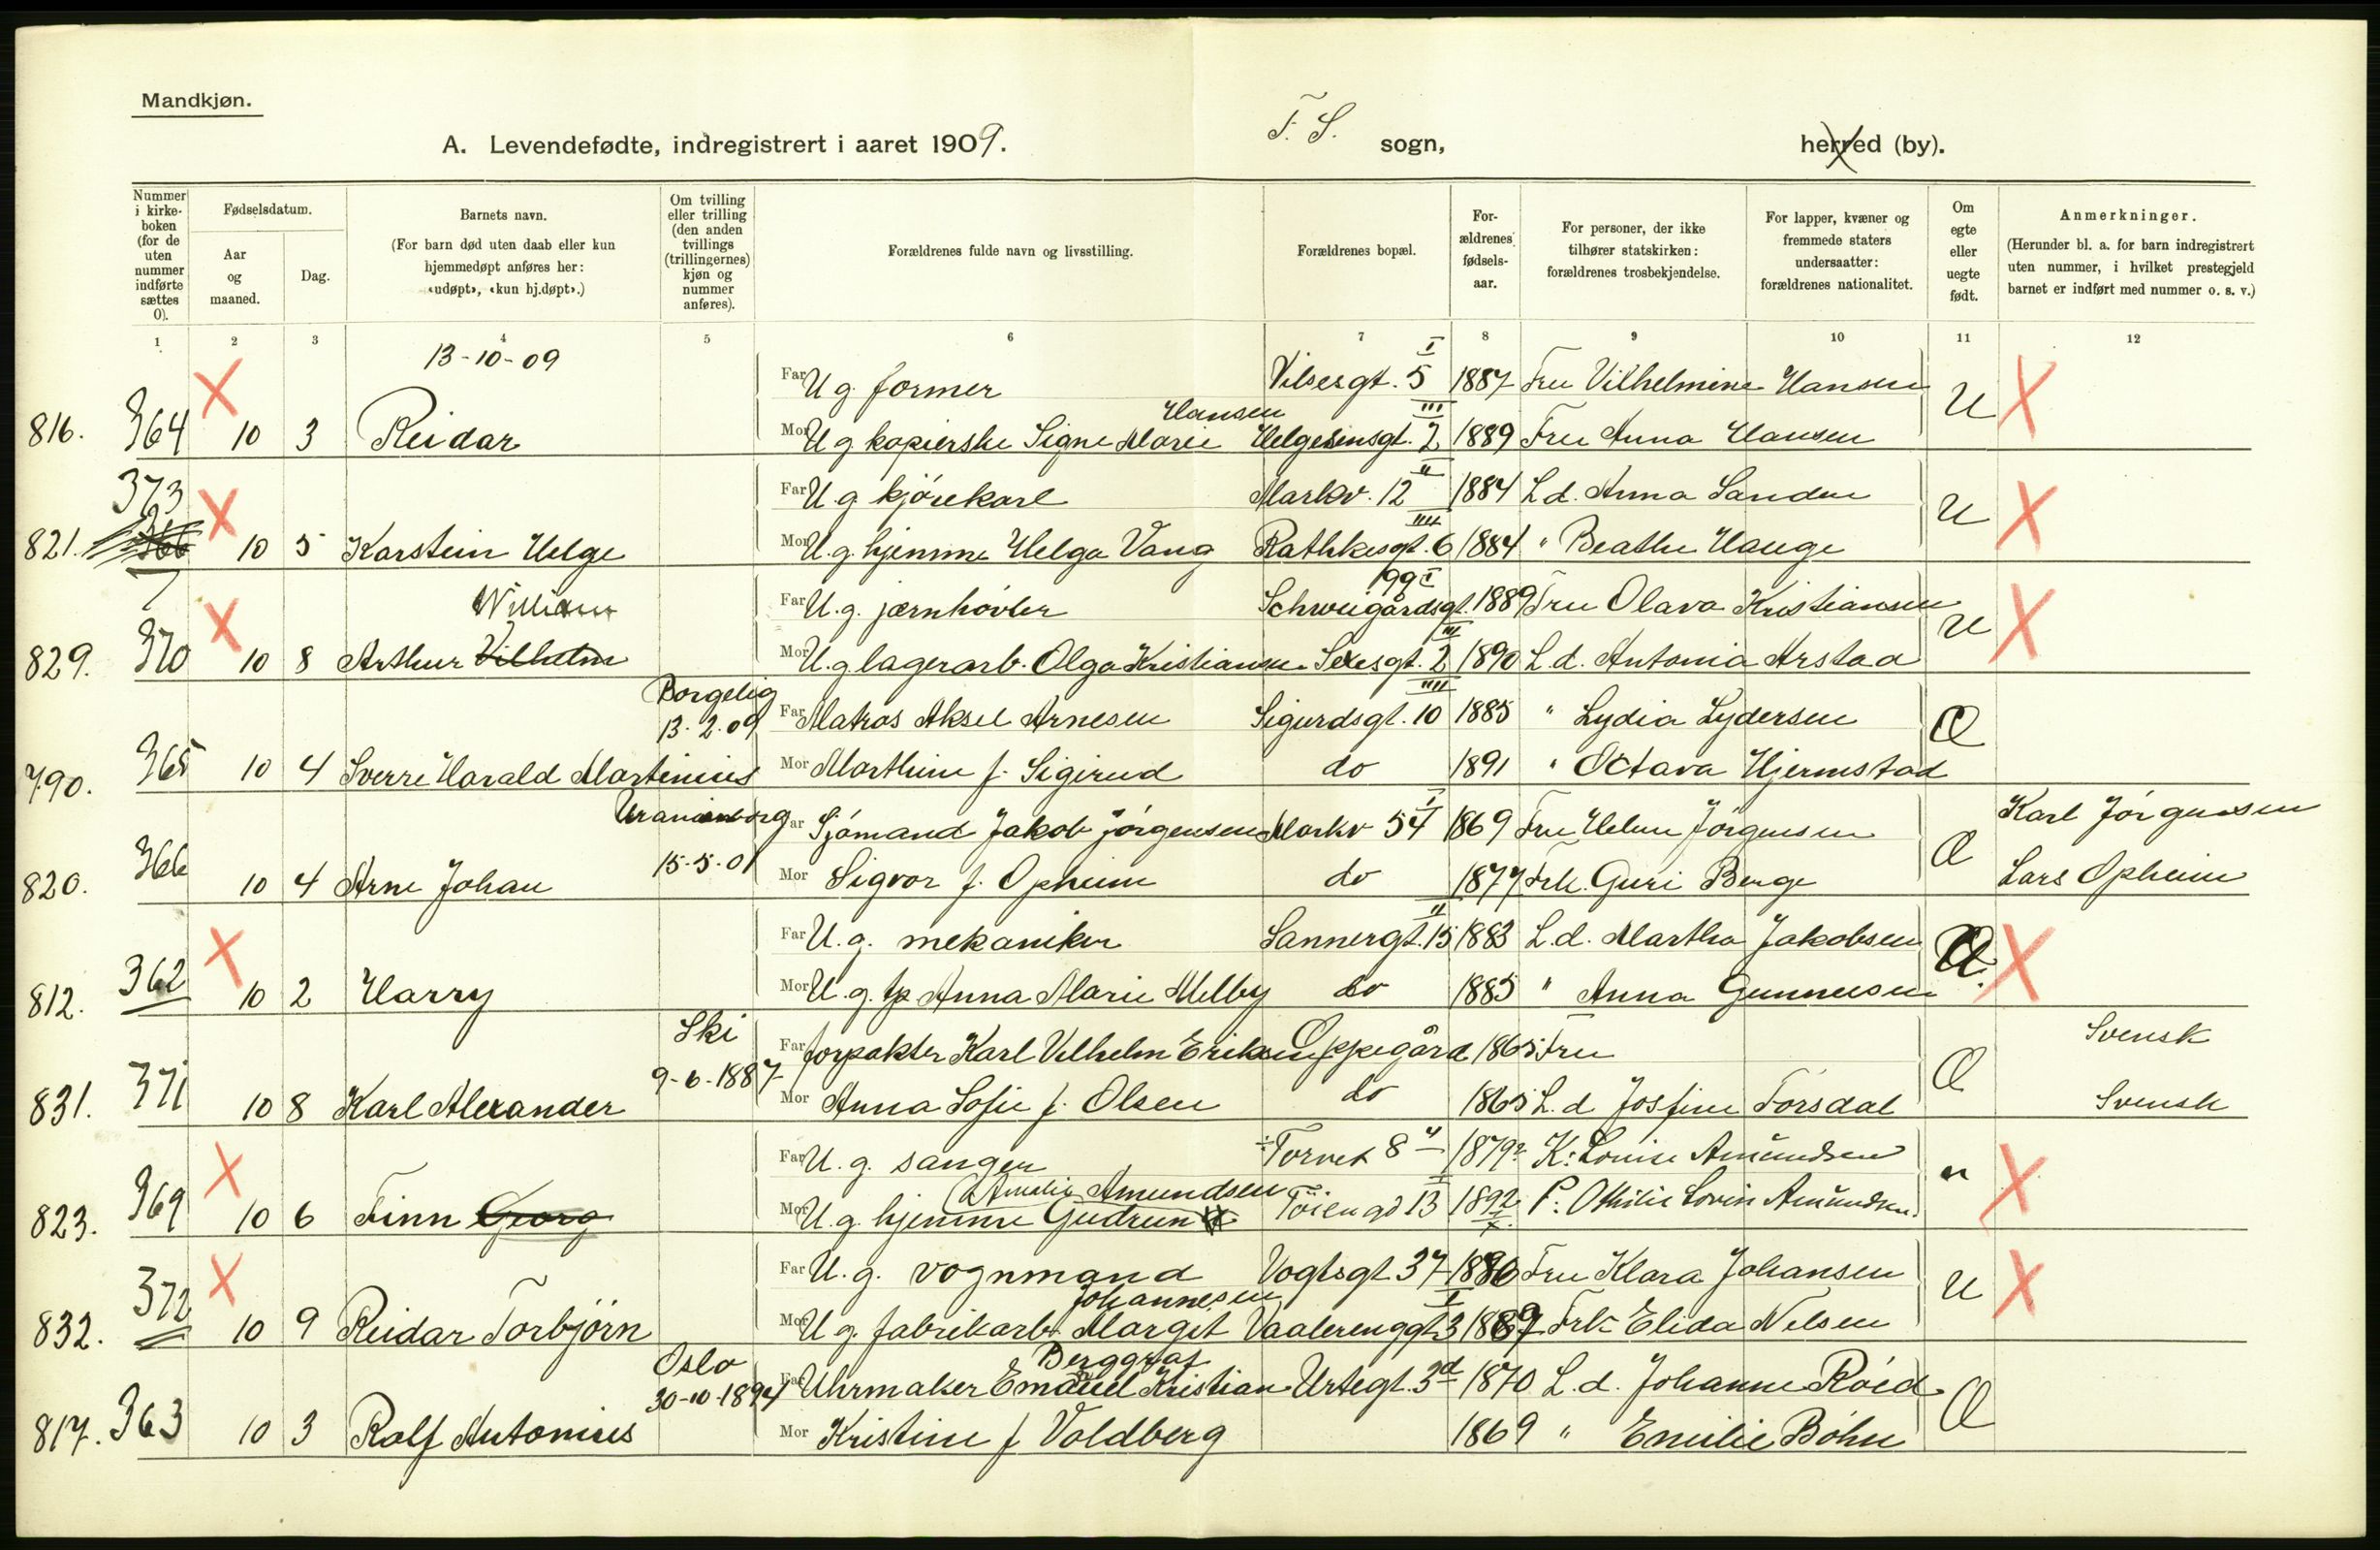 Mandkjøn.
A. Levendefødte, indregistrert i aaret 1909.
F. S. sogn,
herred (by).
Nummer i kirke-boken (for de uten nummer indførte sættes 0).
Fødselsdatum.
Aar og maaned.
Dag.
Barnets navn.
(For barn død uten daab eller kun hjemmedøpt anføres her: «udøpt», «kun hj.døpt».)
Om tvilling eller trilling (den anden tvillings (trillingernes) kjøn og nummer anføres).
Forældrenes fulde navn og livsstilling.
Forældrenes bopæl.
For-ældrenes fødsels-aar.
For personer, der ikke tilhører statskirken: forældrenes trosbekjendelse.
For lapper, kvæner og fremmede staters undersaatter: forældrenes nationalitet.
Om egte eller uegte født.
Anmerkninger.
(Herunder bl. a. for barn indregistrert uten nummer, i hvilket prestegjeld barnet er indført med nummer o. s. v.)
1 2 3 4 5 6 7 8 9 10 11 12
13-10-09
Far U g. former Vilsesgt. 5 I 1887 Fru Vilhelmine Hansen
816. 364 10 3 Reidar Mor U g kopierske Signe Marie Hansen Helgesensgt. 2 III 1889 Fru Anna Hansen U
373
Far U. g. kjørekarl Markv. 12 II 1884 L. d. Anna Sanden
821. 10 5 Karstein Helge Mor U. g. hjemme Helga Vang Rathkesgt. 6 IIII 1884 " Beathe Hauge U
William
Far U. g. jærnhøvler Schweigårdsgt. 99 I 1889 Fru Olava Kristiansen
829. 370 10 8 Arthur Vilhelm Mor U. g lagerarb. Olga Kristiansen Sexesgt. 2 III 1890 L. d. Antonia Arstad U
Borgelig 13-2-09
Far Matros Aksel Arnesen Sigurdsgt. 10 IIII 1885 " Lydia Lydersen
790. 365 10 4 Sverre Harald Martinius Mor Marthine f. Sigirud do 1891 " Octava Hjermstad Æ
Uranienborg 15-5-01
Far Sjømand Jakob Jørgensen Markv 54 I 1869 Fru Helene Jørgensen Karl Jørgensen
820. 366 10 4 Arne Johan Mor Sigvor f. Opheim do 1877 Frk. Guri Berge Æ Lars Opheim
Far U. g. mekaniker Sannergt. 15 II 1883 L. d. Martha Jakobsen
812. 362 10 2 Harry Mor U. g. tp Anna Marie Melby do 1885 " Anna Gunnersen U.
Ski 9-6-1887
Far forpakter Karl Vilhelm Eriksen Oppegård 1865 Fru Svensk
831. 371 10 8 Karl Alexander Mor Anna Sofie f. Olsen do 1865 L. d Josfine Torsdal Æ Svensk
Far U. g. sanger Torvet 8 1879? K: Louise Amundsen
823. 369 10 6 Finn Georg Mor U. g. hjemme Gudrun Amalie Amundsen Tøiengd 13 I 1892 P: Othilie Lovise Amundsen u
Far U. g. vognmand Vogtsgt 37 1880 Fru Klara Johansen
832. 372 10 9 Reidar Torbjørn Mor U g. fabrikarb. Margit Johannesen Vaalerenggt. 3 I 1889 Frk Elida Nilsen U
Oslo 30-10-1894
Far Uhrmaker Emanuel Kristian Berggraf Urtegt. 3d 1870 L. d. Johanne Røed
817. 363 10 3 Rolf Antonius Mor Kristine f Voldberg 1869 " Emilie Bøhn Æ